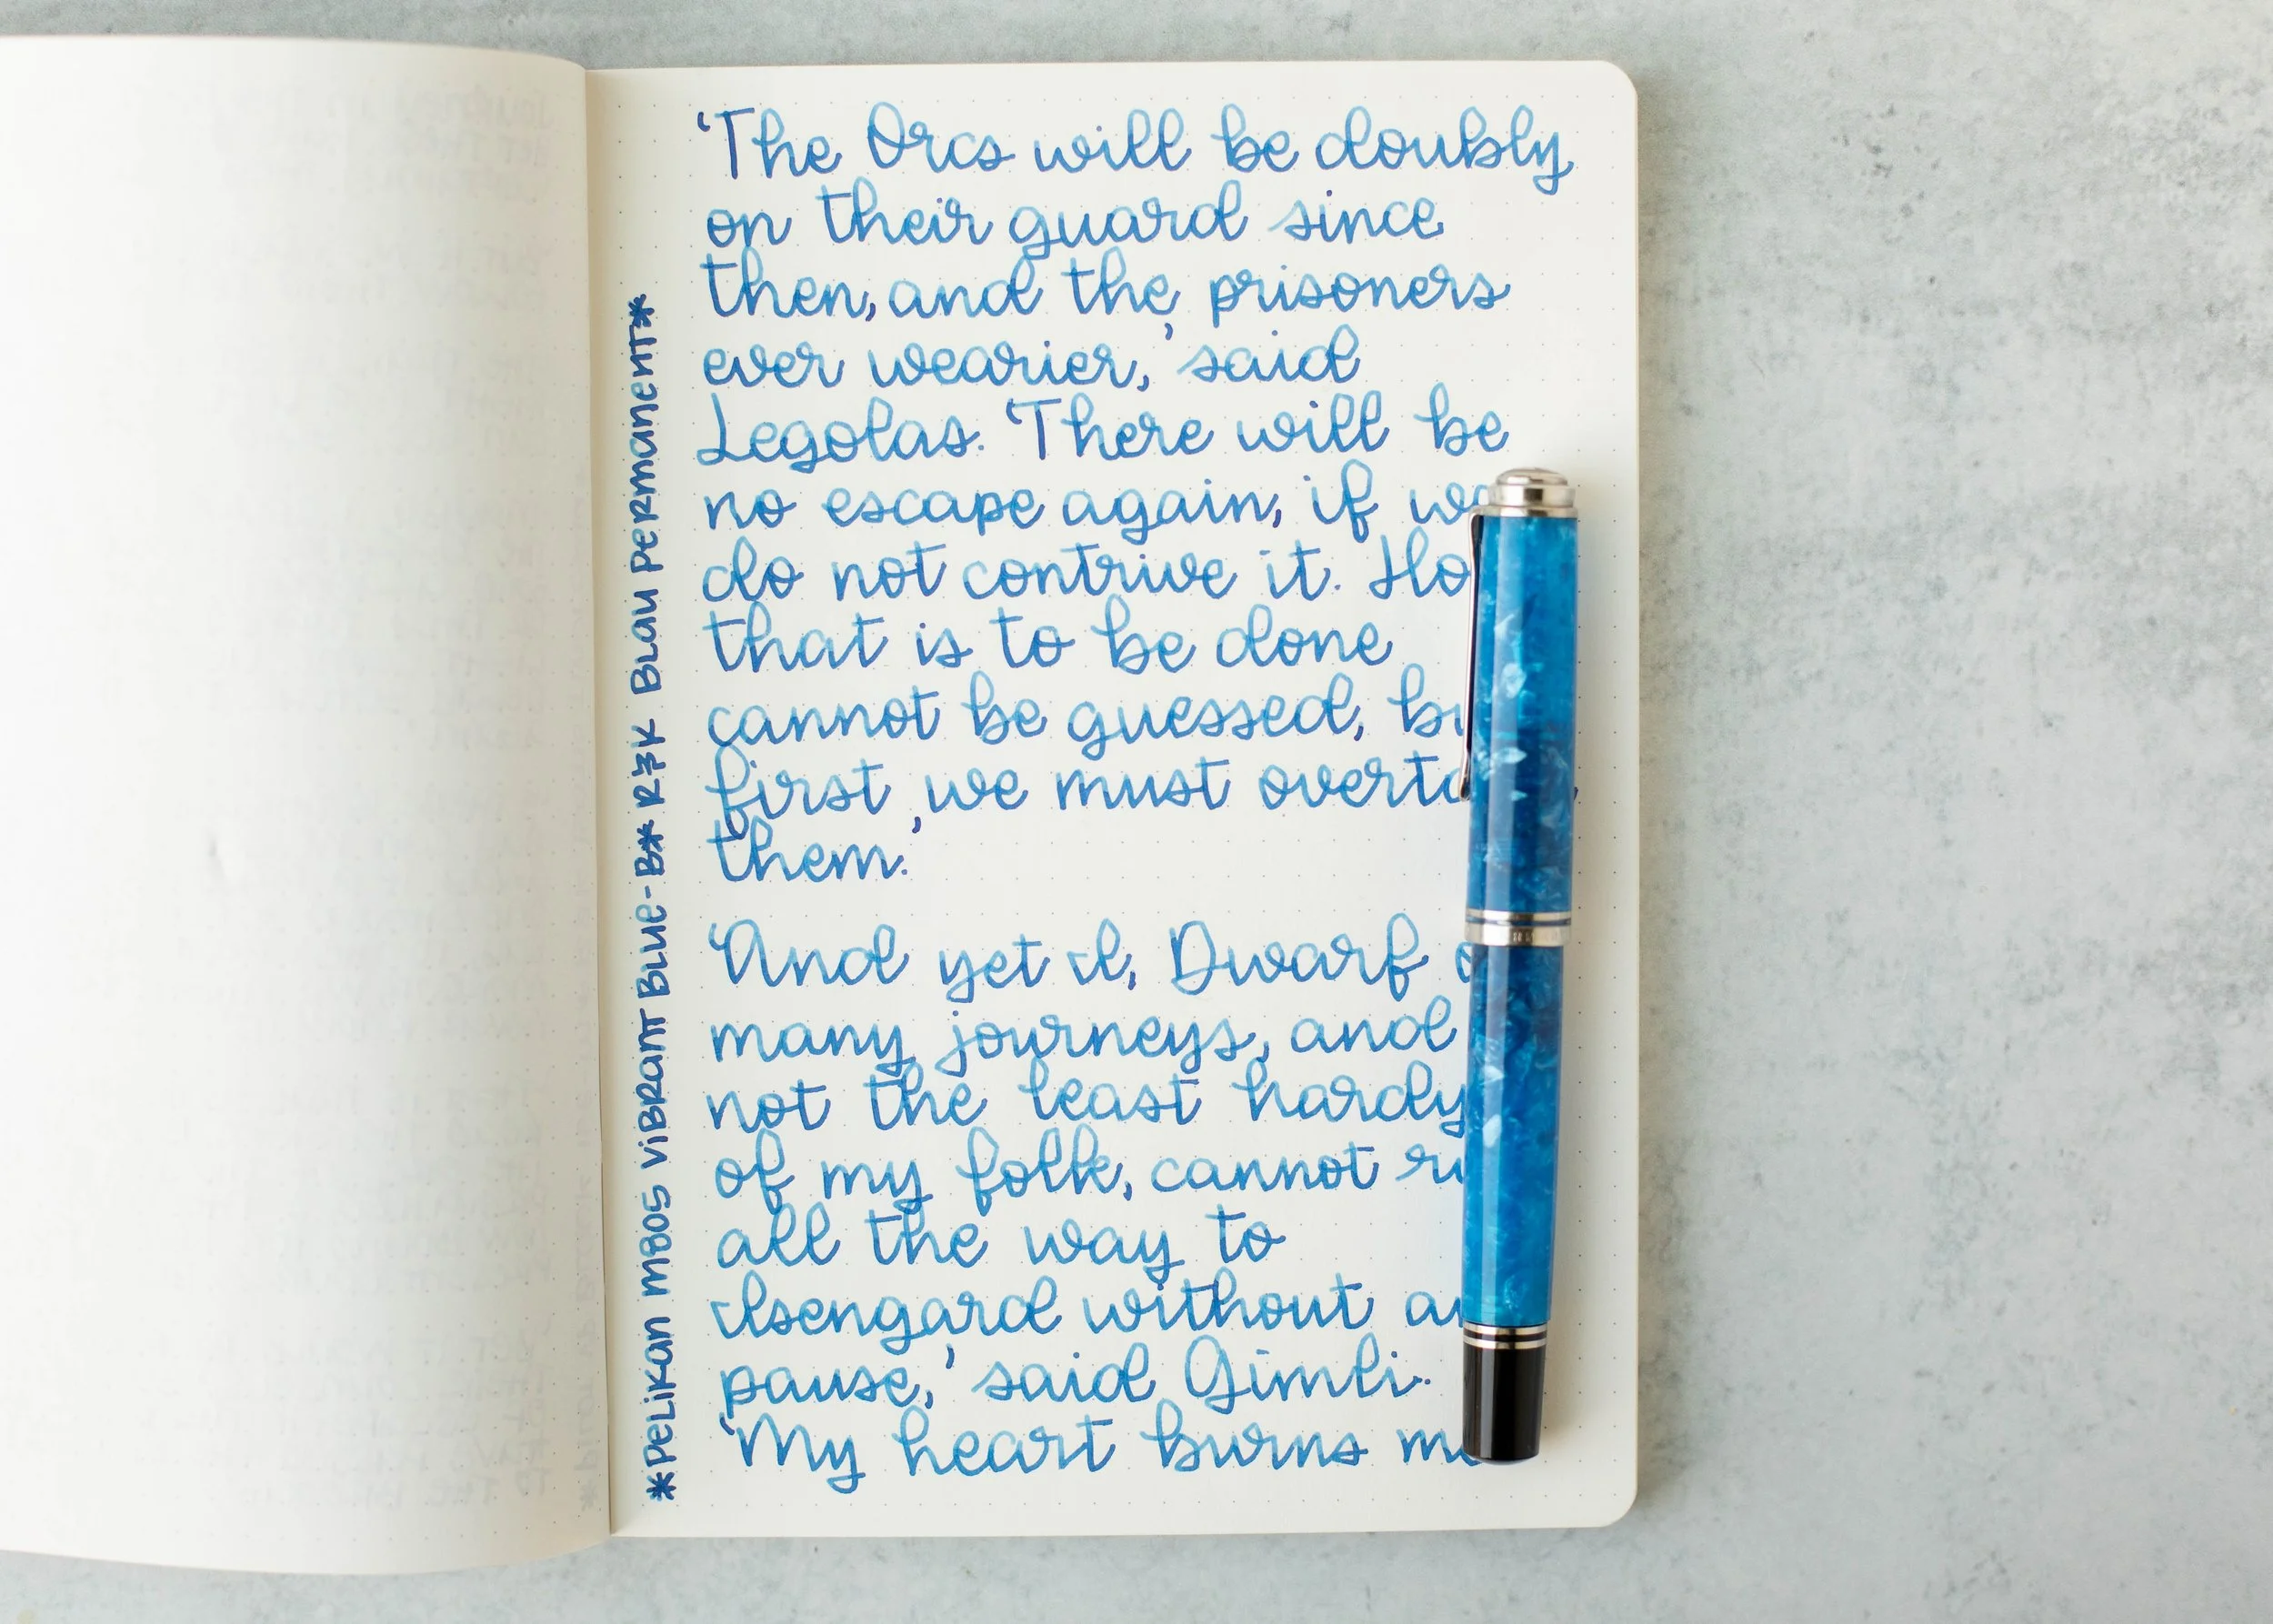 'The Orcs will be doubly
on their guard since
then, and the prisoners
ever wearier,' said
Legolas. 'There will be
no escape again, if
do not contrive it.
that is to be done
cannot be guessed,
first we must
them.'
'And yet I, Dwarf
many journeys, and
not the least hardy
of my folk, cannot
all the way to
Isengard without
pause,' said Gimli.
'My heart burns
*Pelikan M805 Vibrant Blue-B* R&K Blau Permanent*